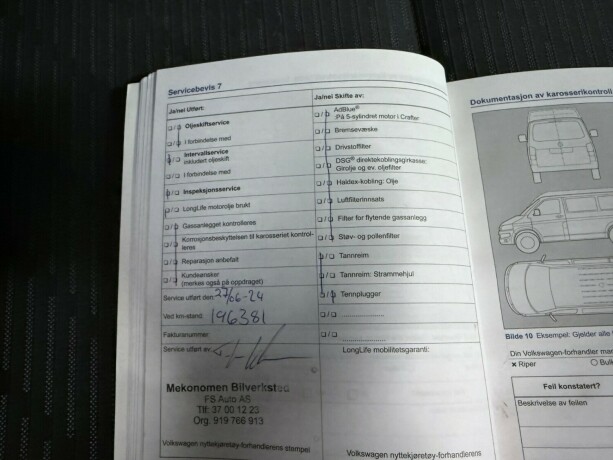 Servicebevis 7
Ja/nei Utført:
Oljeskiftservice
I forbindelse med
Intervallservice
inkludert oljeskift
I forbindelse med
Inspeksjonsservice
LongLife motorolje brukt
Gassanlegget kontrolleres
Korrosjonsbeskyttelsen til karosseriet kontrol-
leres
Reparasjon anbefalt
Kundeønsker
(merkes også på oppdraget)
Service utført den: 27/06-24
Ved km-stand: 196381
Fakturanummer
Service utført av
Mekonomen Bilverksted
FS Auto AS
Tlf: 37 00 12 23
Org. 919 766 913
Volkswagen nyttekjøretøy-forhandlerens stempel
Ja/nei Skifte av:
AdBlue®
På 5-sylindret motor i Crafter
Bremsevæske
Drivstoffilter
DSG® direktekoblingsgirkasse:
Girolje og ev. oljefilter
Haldex-kobling: Olje
Luftfilterinnsats
Filter for flytende gassanlegg
Støv- og pollenfilter
Tannreim
Tannreim: Strammehjul
Tennplugger
LongLife mobilitetsgaranti:
Volkswagen nyttekjøretøy-forhandlerens
Dokumentasjon av karosserikontroll
Bilde 10 Eksempel: Gjelder alle
Din Volkswagen-forhandler
x Riper O Bulk
Feil konstatert?
Beskrivelse av feilen